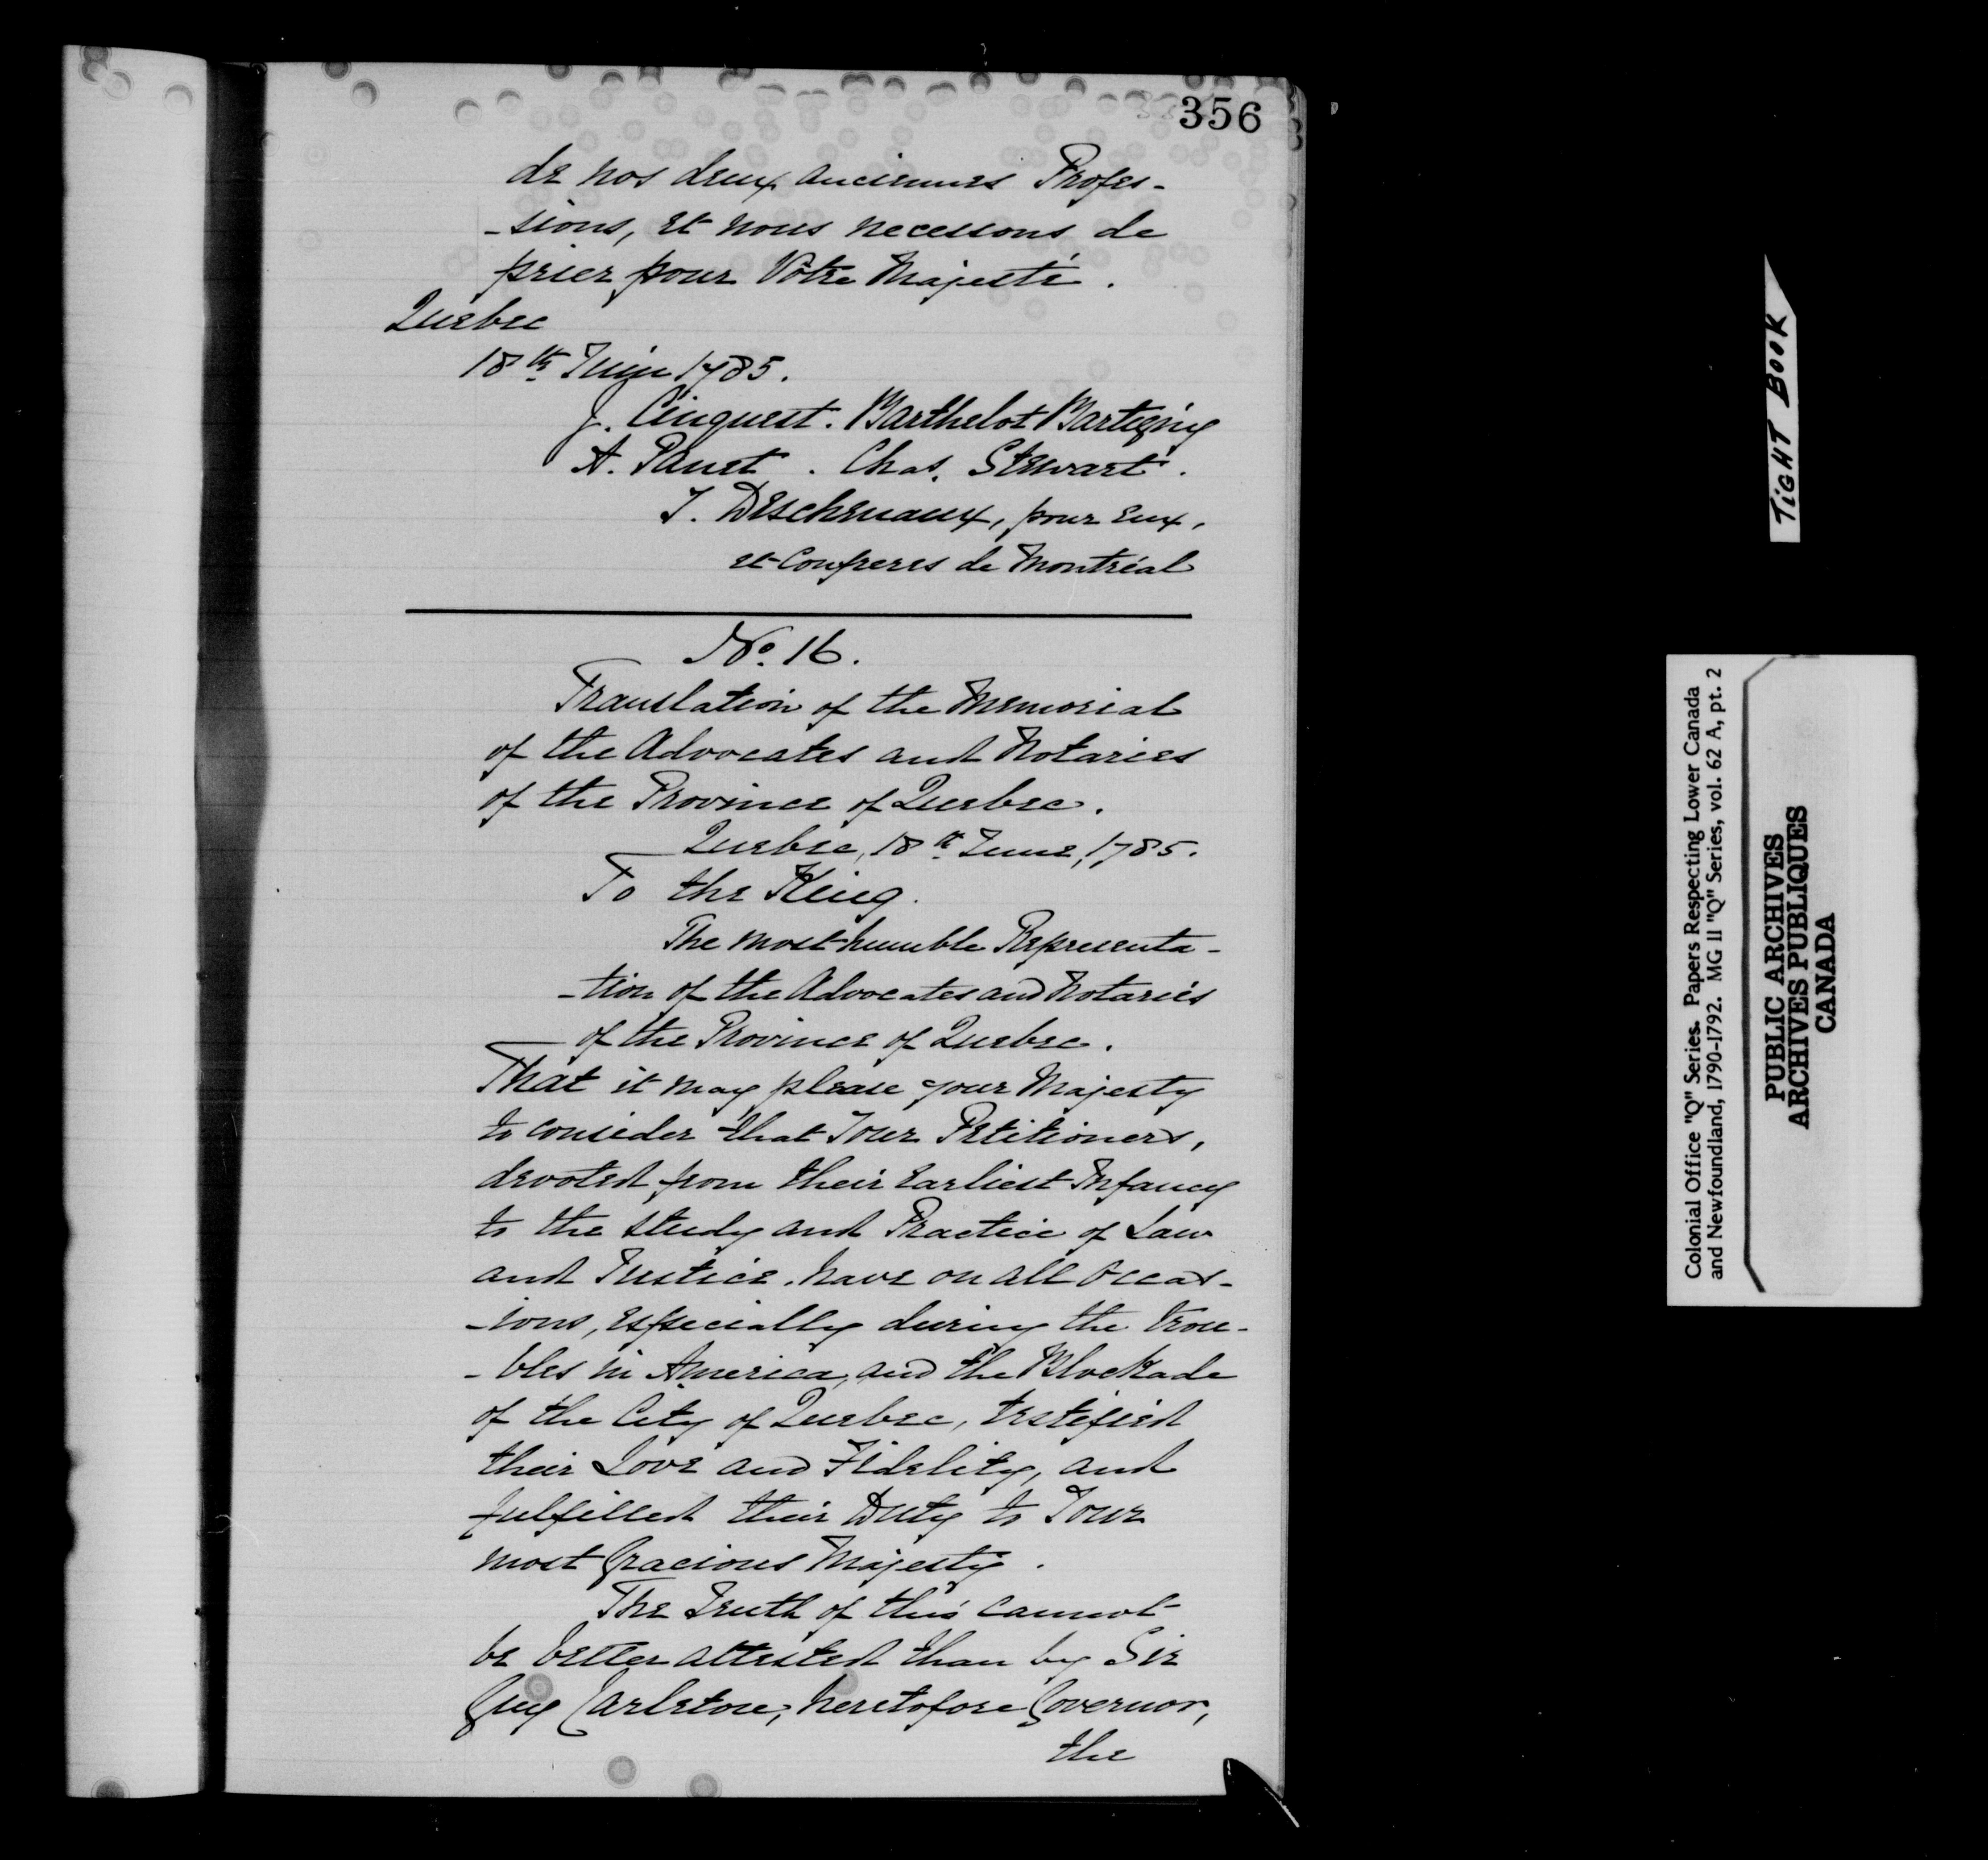 356
de nos deux anciennes Profes-
-sions, et nous necessons de
prier pour Vôtre Majesté.
Quebec
18th Juin 1785.
J. Cinquest. Barthelot Bartigny
A. Panet. Chas. Stewart.
J. Deschenaux, pour eux,
et Confreres de Montréal
No. 16.
Translation of the Memorial
of the Advocates and Notaries
of the Province of Quebec.
Quebec, 18th June, 1785.
To the King.
The most humble Representa-
-tion of the Advocates and Notaries
of the Province of Quebec.
That it may please your Majesty
to consider that Your Petitioners,
devoted from their earliest Infancy
to the study and Practice of Law
and Justice, have on all Occas-
-ions, especially during the trou-
-bles in America, and the Blockade
of the City of Quebec, testified
their Love and Fidelity, and
fulfilled their Duty to Your
most Gracious Majesty.
The Truth of this cannot
be better attested than by Sir
Guy Carleton, heretofore Governor,
the
TIGHT BOOK
Colonial Office "Q" Series. Papers Respecting Lower Canada
and Newfoundland, 1790-1792. MG 11 "Q" Series, vol. 62 A, pt. 2
PUBLIC ARCHIVES
ARCHIVES PUBLIQUES
CANADA